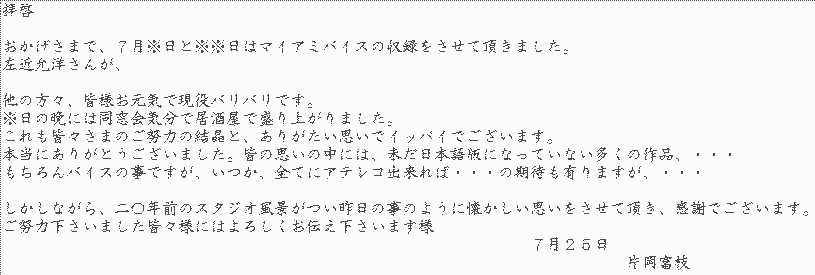 拝啓
おかげさまで、７月※日と※※日はマイアミバイスの収録をさせて頂きました。
左近允洋さんが、
他の方々、皆様お元気で現役バリバリです。
※日の晩には同窓会気分で居酒屋で盛り上がりました。
これも皆々さまのご努力の結晶と、ありがたい思いでイッパイでございます。
本当にありがとうございました。皆の思いの中には、未だ日本語版になっていない多くの作品、・・・
もちろんバイスの事ですが、いつか、全てにアテレコ出来れば・・・の期待も有りますが、・・・
しかしながら、二〇年前のスタジオ風景がつい昨日の事のように懐かしい思いをさせて頂き、感謝でございます。
ご努力下さいました皆々様にはよろしくお伝え下さいます様
７月２５日
片岡富枝